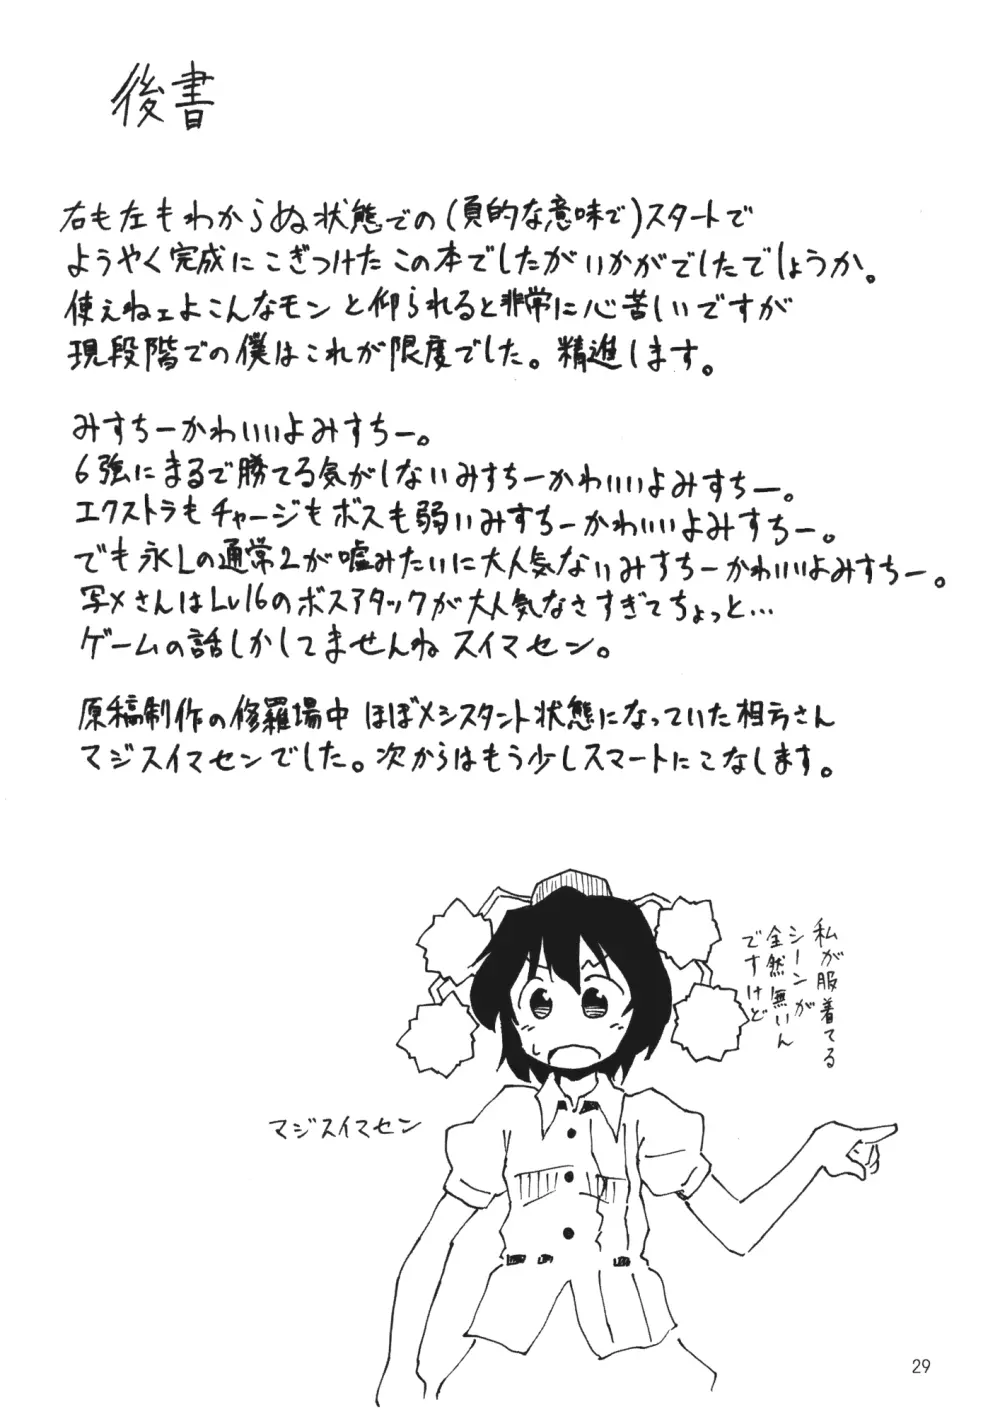 後書
右も左もわからぬ状態での(負的な意味で)スタートで
ようやく完成にこぎつけたこの本でしたがいかがでしたでしょうか。
使えねェよこんなモンと仰られると非常に心苦しいですが
現段階での僕はこれが限度でした。精進します。
みすちーかわいいよみすちー。
6強にまるで勝てる気がしないみすちーかわいいよみすちー。
エクストラもチャージもボスも弱いみすちーかわいいよみすちー。
でも永Lの通常2が嘘みたいに大人気ないみすちーかわいいよみすちー。
写メさんはLv16のボスアタックが大人気なさすぎてちょっと…
ゲームの話しかしてませんねスイマセン。
原稿制作の修羅場中ほぼメシスタント状態になっていた相方さん
マジスイマセンでした。次からはもう少しスマートにこなします。
私が服着てる
シーンが
全然無いん
ですけど
マジスイマセン
29